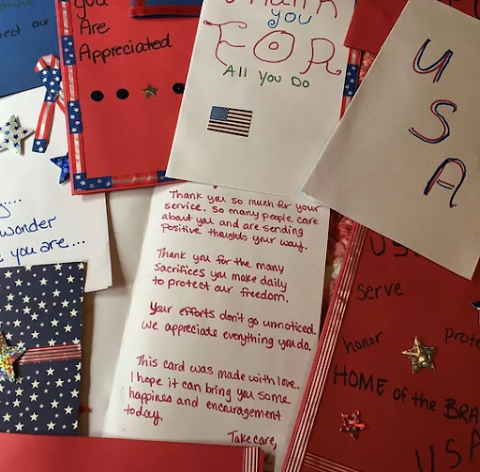 you
Are
Appreciated
THANK
you
FOR
All You Do
USA
otect our
wonder
you are...
Thank you so much for your
service. So many people care
about you and are sending
positive thoughts your way.
Thank you for the many
sacrifices you make daily
to protect our freedom.
Your efforts don't go unnoticed.
We appreciate everything you do.
This card was made with love.
I hope it can bring you some
happines and encouragement
today.
Take care,
serve
honor
HOME of the BRA
USA